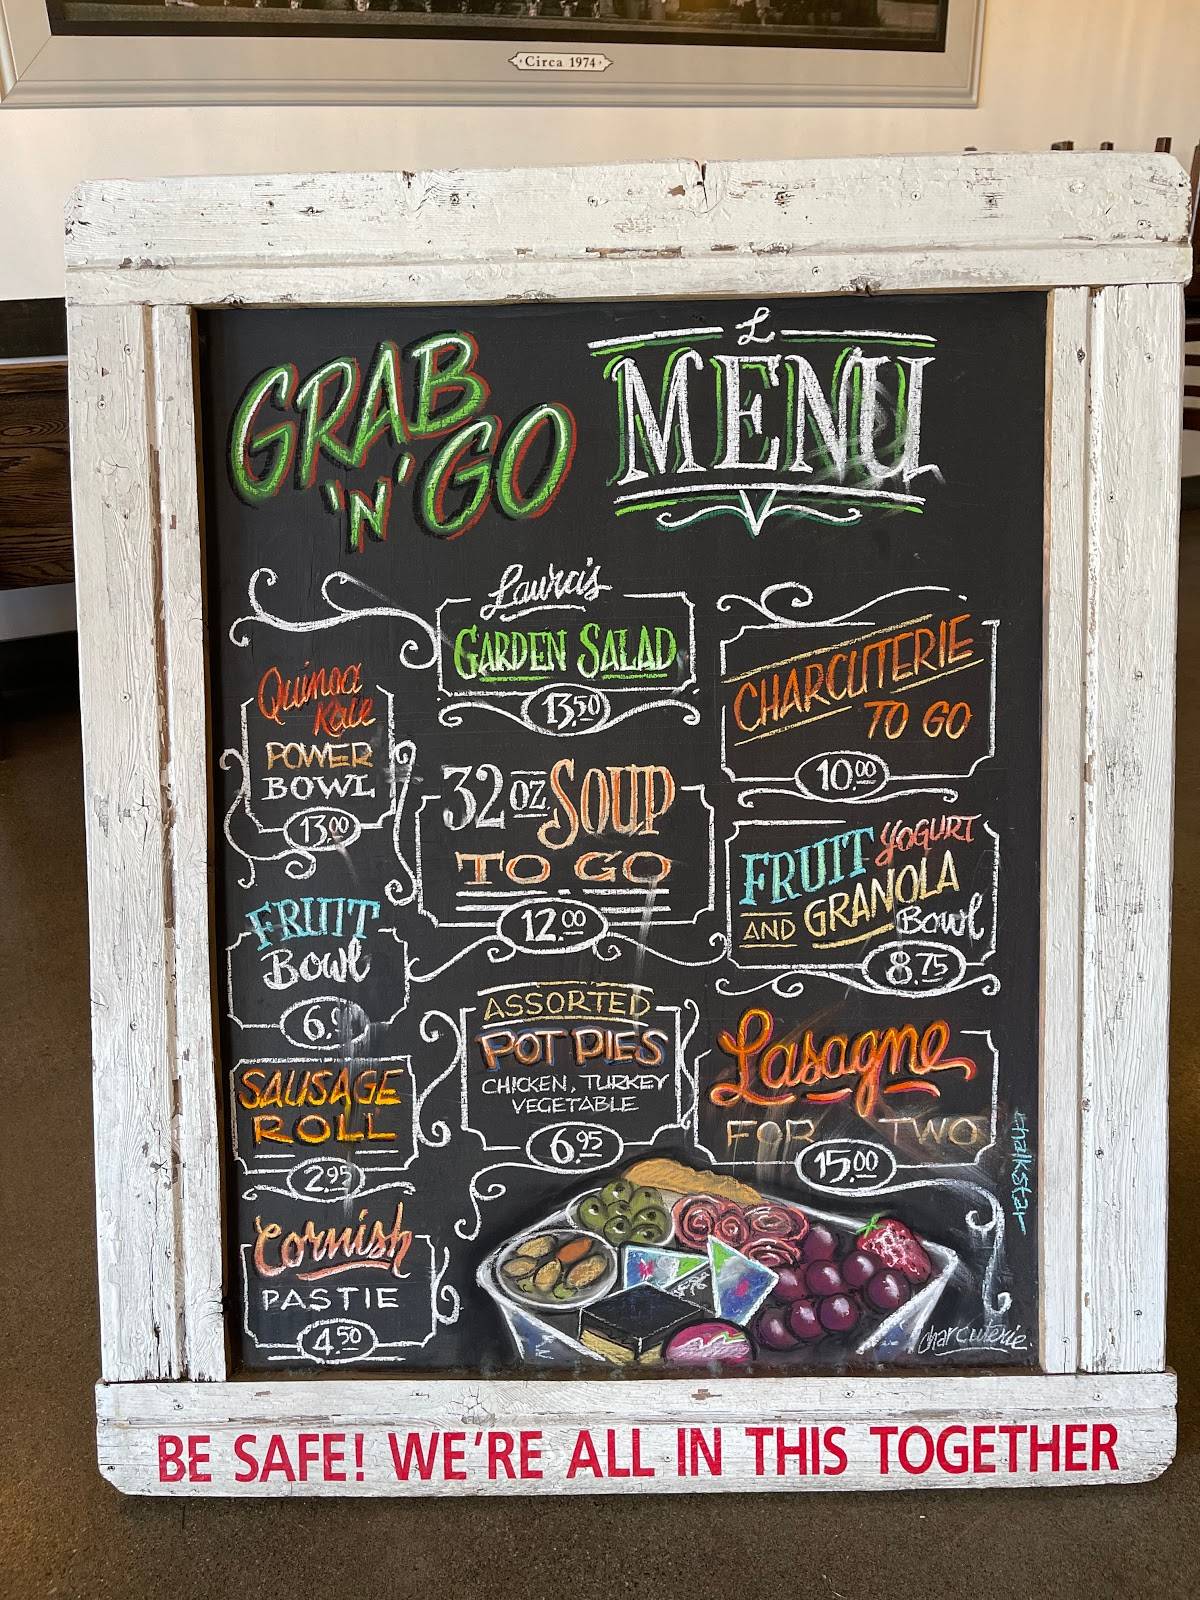 Circa 1974
GRAB
'N' GO
MENU
Quinoa
Kale
POWER
BOWL
13.00
FRUIT
Bowl
SAUSAGE
ROLL
2.95
Cornish
PASTIE
4.50
Laura's
GARDEN SALAD
13.50
32 OZ SOUP
TO GO
12.00
ASSORTED
POT PIES
CHICKEN, TURKEY
VEGETABLE
6.95
CHARCUTERIE
TO GO
10.00
FRUIT YOGURT
AND GRANOLA
Bowl
8.75
Lasagne
FOR TWO
15.00
Charcuterie
BE SAFE! WE'RE ALL IN THIS TOGETHER